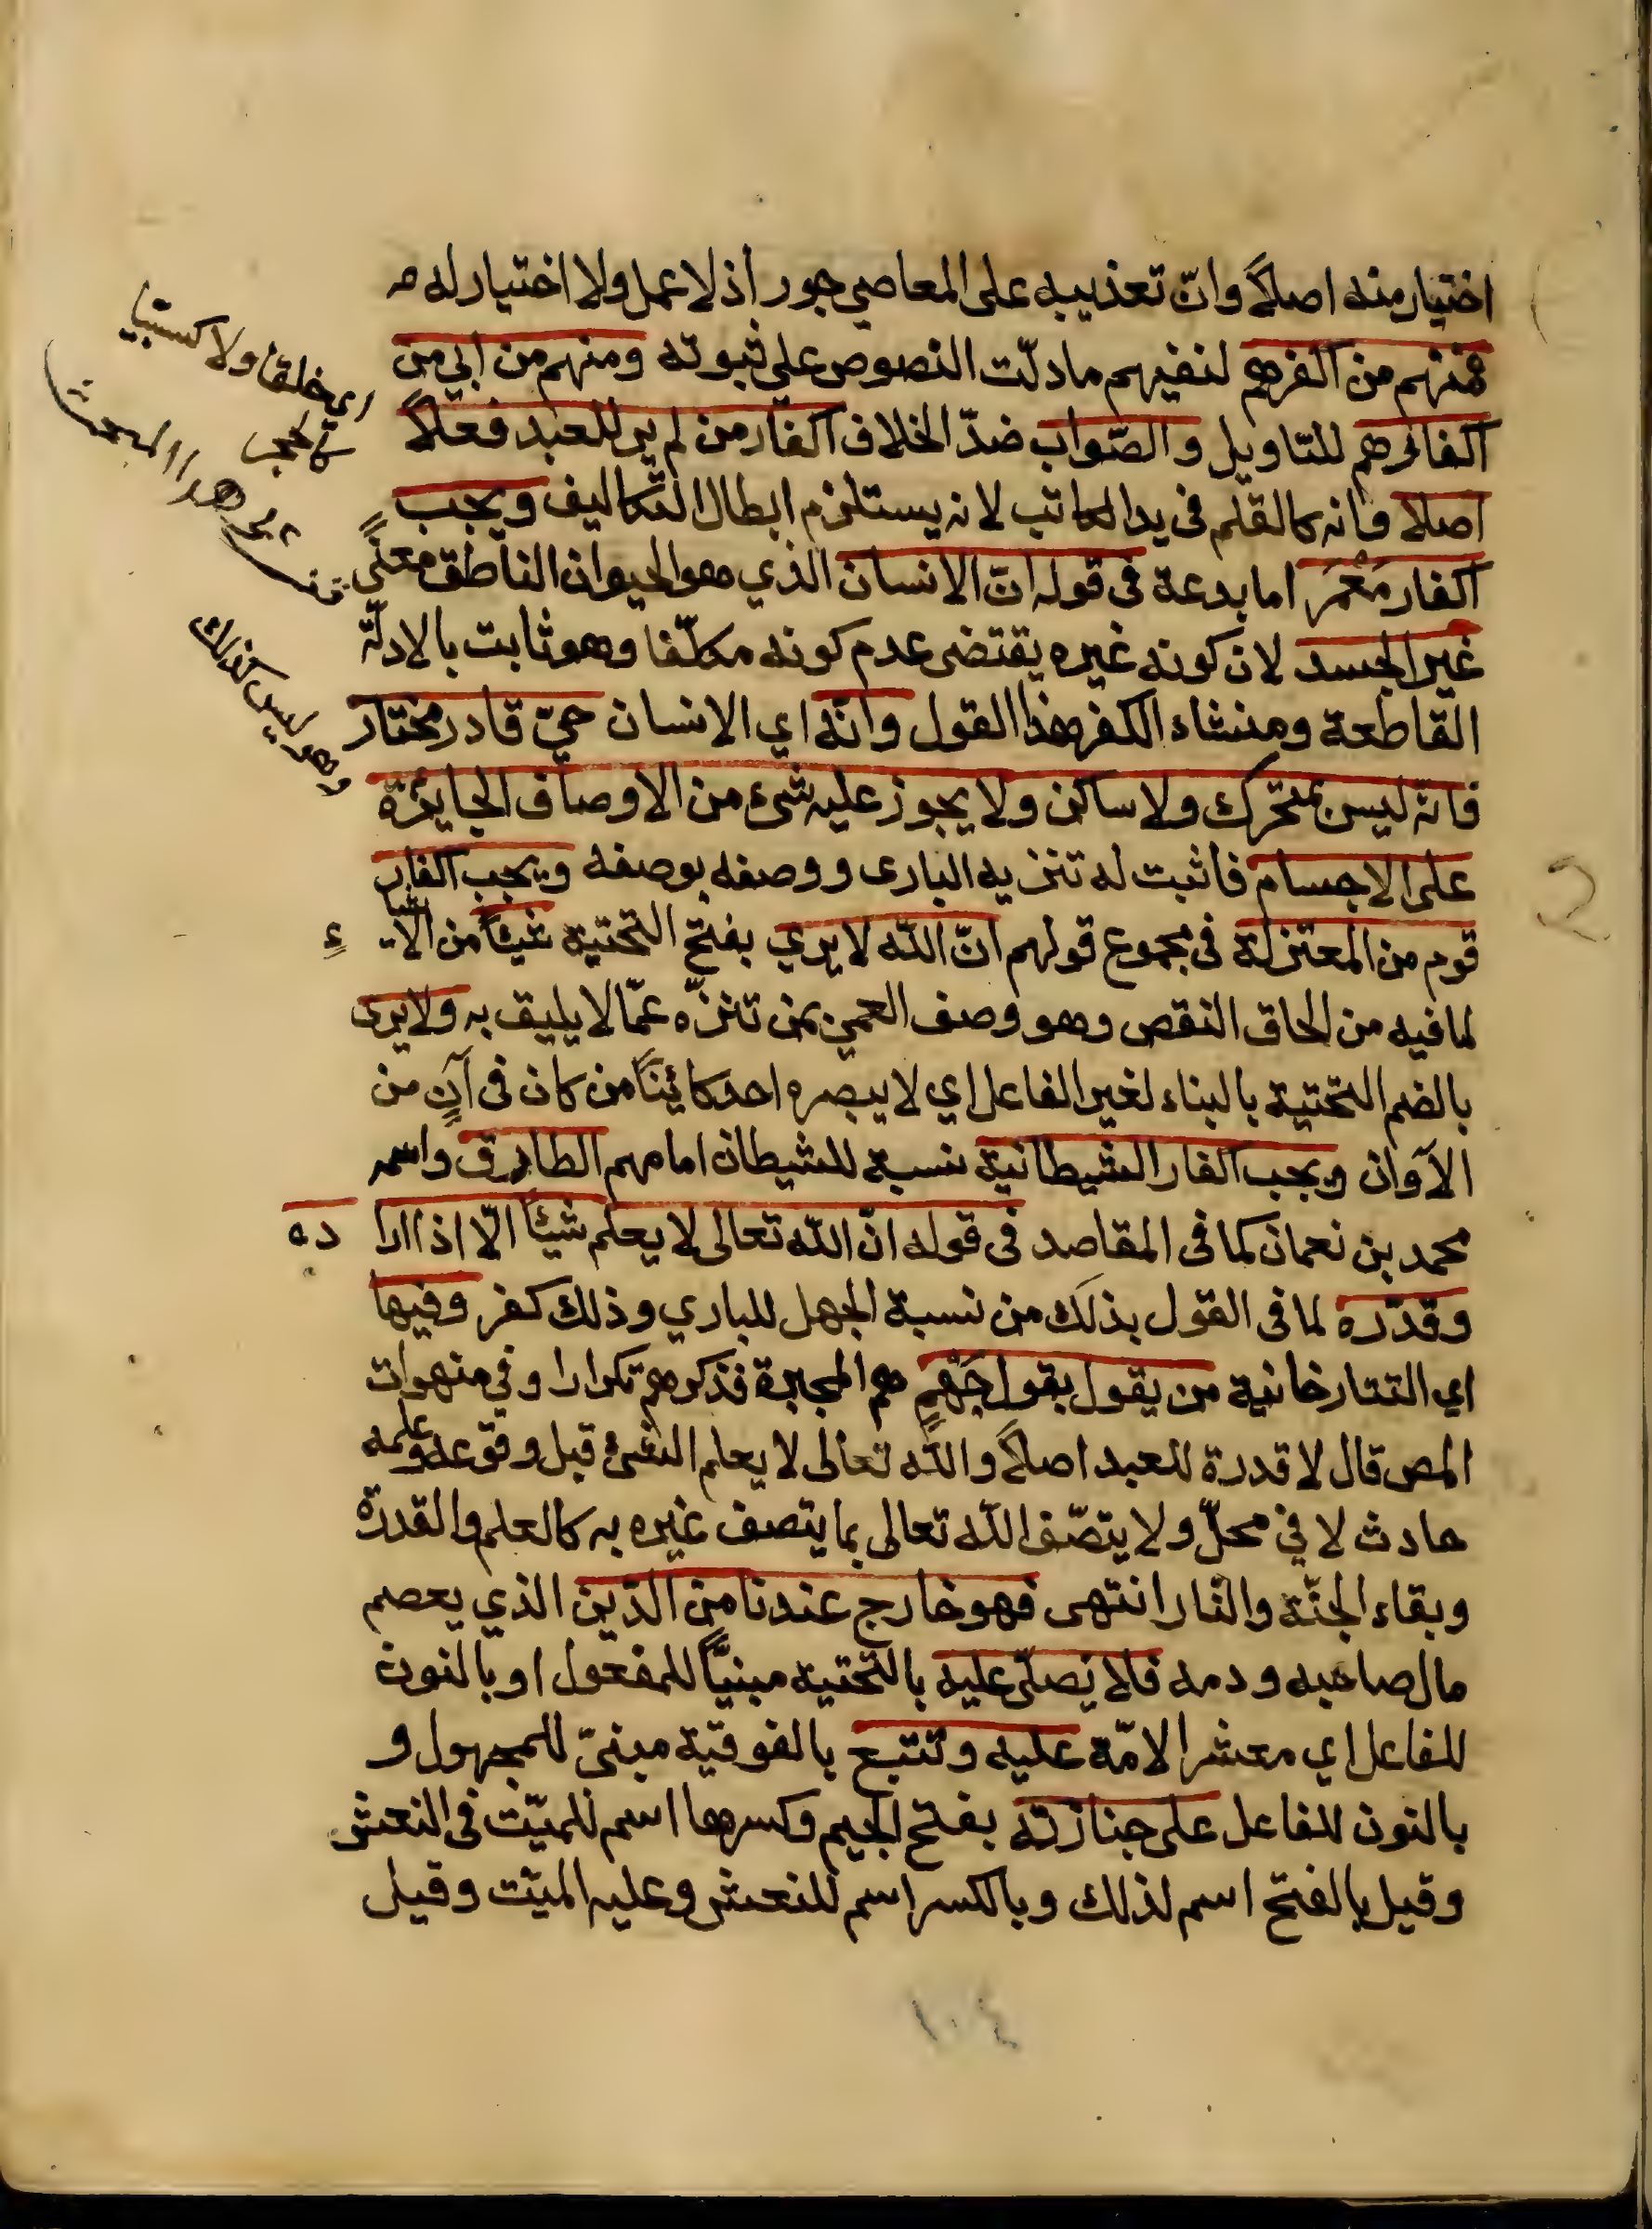 اختيار منه اصلاً وانّ تعذيبه على المعاصي جور اذ لا عمل ولا اختيار له
فمنهم من اكفرهم لنفيهم ما دلّت النصوص على ثبوته ومنهم من ابى من
اكفارهم للتاويل والصّواب ضدّ الخلاف اكفار من لم ير للعبد فعلاً
اصلا وانه كالقلم فى يد الكاتب لانه يستلزم ابطال التّكاليف ويجب
اكفار مَعْمَر اما بدعة فى قوله انّ الانسان الذي هو الحيوان الناطق معنًى
غير الجسد لان كونه غيره يقتضى عدم كونه مكلّفا وهو ثابت بالادلّة
القاطعة ومنشاء الكفر هذا القول وانّه اي الانسان حيّ قادر مختار
فانّه ليس بمتحرّك ولا ساكن ولا يجوز عليه شىء من الاوصاف الجائزة
على الاجسام فاثبت له تنزيه البارى ووصفه بوصفه ويجب اكفار
قوم من المعتزلة فى مجموع قولهم انّ اللّه لا يري بفتح التحتية شيئاً من الاشياء
لما فيه من الحاق النقص وهو وصف العمي بمن تنزّه عمّا لا يليق به ولا يرى
بالضم التحتية بالبناء لغير الفاعل اي لا يبصره احد كائيناً من كان فى آنٍ من
الآوان ويجب اكفار الشيطانية نسبة للشيطان امامهم الطارق واسمه
محمد بن نعمان كما فى المقاصد فى قوله انّ اللّه تعالى لا يعلم شيئاً الّا اذا اراده
وقدّره لما فى القول بذلك من نسبة الجهل للباري وذلك كفر وفيها
اي التتارخانية من يقول بقول جَهْمٍ هم المجبرة فذكرهم تكرارا وفي منهوات
المص قال لا قدرة للعبد اصلاً واللّه تعالى لا يعلم الشىء قبل وقوعه وعلمه
حادث لا في محلّ ولا يتصّف اللّه تعالى بما يتصف غيره به كالعلم والقدرة
وبقاء الجنّة والنّار انتهى فهو خارج عندنا من الدّين الذي يعصم
مال صاحبه ودمه فلا يصلّى عليه بالتحتيه مبنيّاً للمفعول او بالنون
للفاعل اي معشر الامّة عليه وتتبع بالفوقية مبنىّ للمجهول و
بالنون للفاعل على جنازته بفتح الجيم وكسرها اسم للميّت فى النعش
وقيل بالفتح اسم لذلك وبالكسر اسم للنعش وعليه الميّت وقيل
اي خلقا ولا كسبيا
وهو ليس كذلك
١٠٤